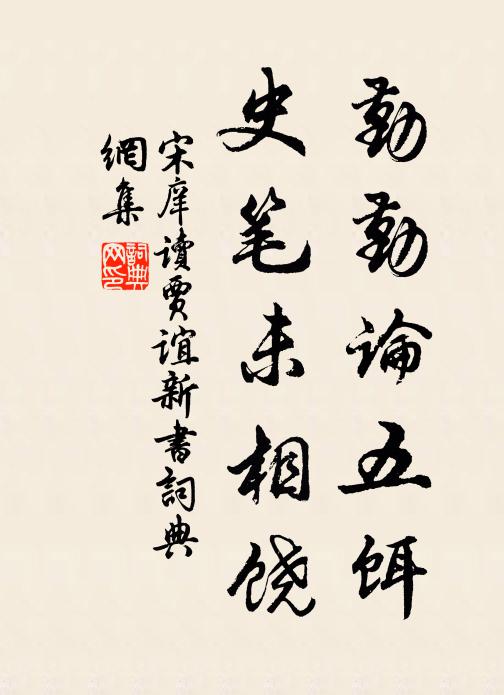 勤勤論五饵
史笔未相饶
宋庠讀賈誼新書詞典
網集
詞典
网印